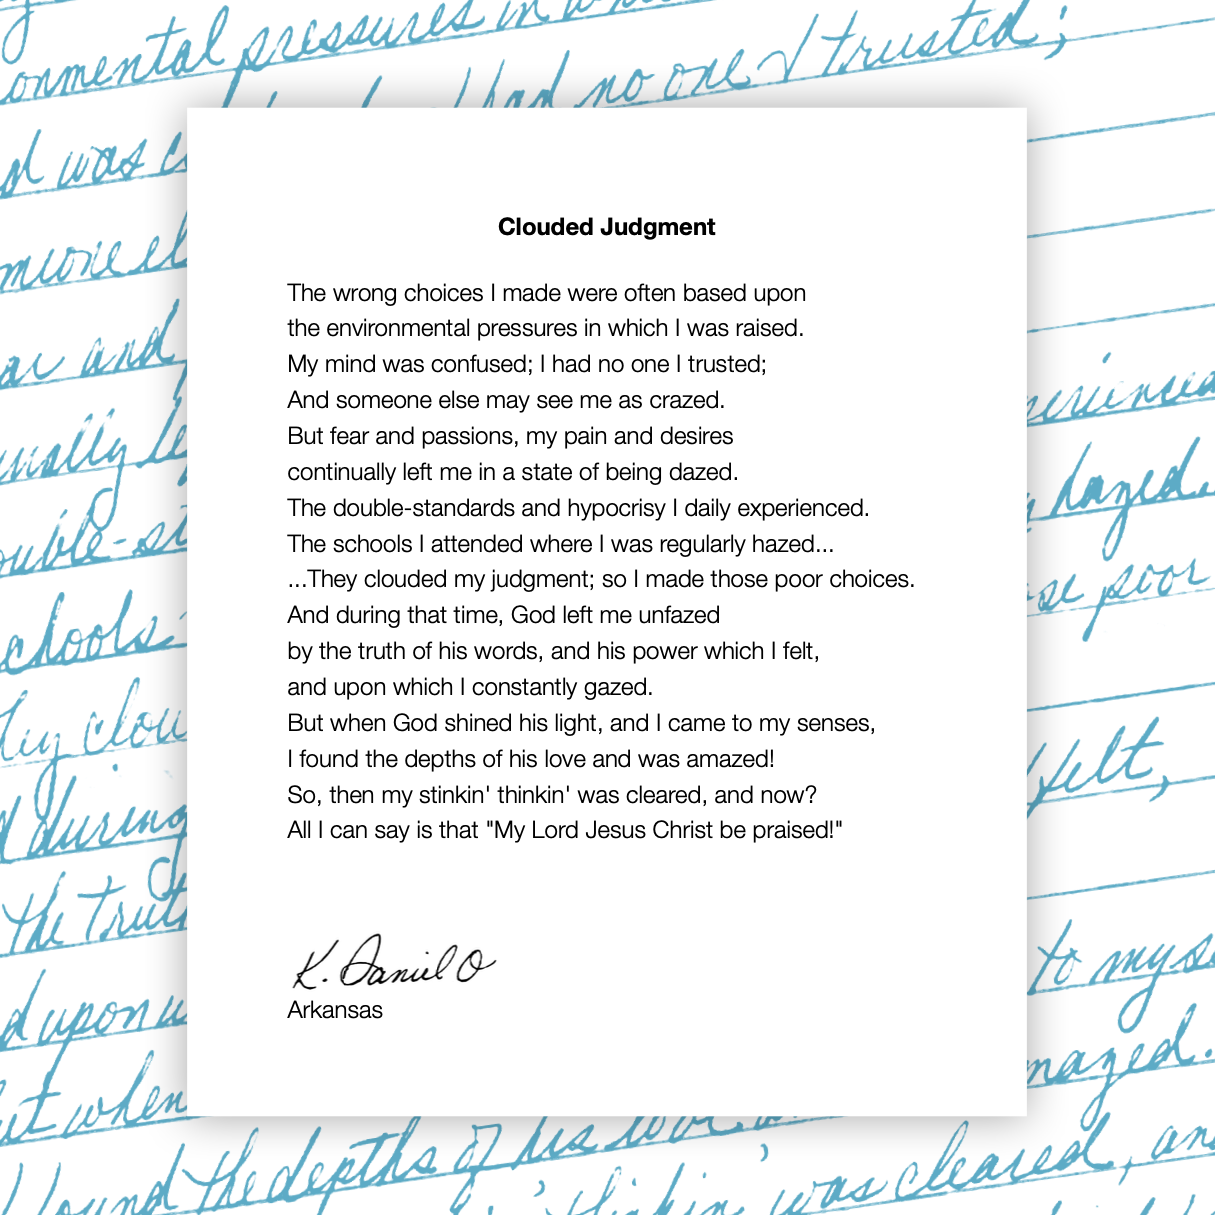 onmental pressures in
had no one I trusted;
d was c
meone el
ar and
nually le
ouble-st
schools
hey clou
d during
the trut
d upon w
ut when
found the depths of his love
thinkin' was cleared, an
perienced
dazed.
se poor
felt,
to my se
mazed.
Clouded Judgment
The wrong choices I made were often based upon
the environmental pressures in which I was raised.
My mind was confused; I had no one I trusted;
And someone else may see me as crazed.
But fear and passions, my pain and desires
continually left me in a state of being dazed.
The double-standards and hypocrisy I daily experienced.
The schools I attended where I was regularly hazed...
...They clouded my judgment; so I made those poor choices.
And during that time, God left me unfazed
by the truth of his words, and his power which I felt,
and upon which I constantly gazed.
But when God shined his light, and I came to my senses,
I found the depths of his love and was amazed!
So, then my stinkin' thinkin' was cleared, and now?
All I can say is that "My Lord Jesus Christ be praised!"
K. Daniel O
Arkansas